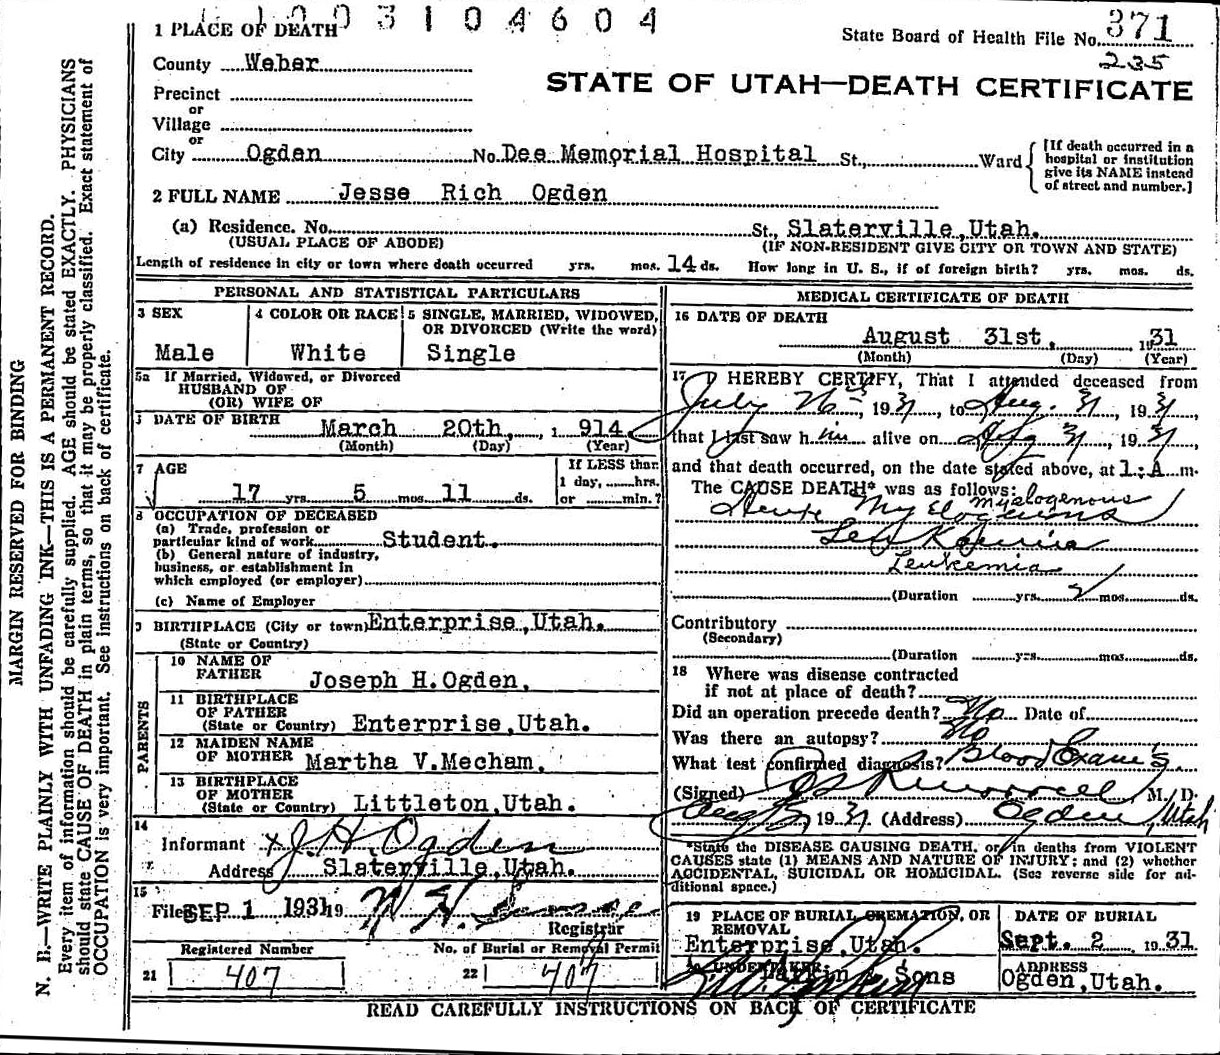 1003104604
1 PLACE OF DEATH
State Board of Health File No. 371
235
County Weber
STATE OF UTAH—DEATH CERTIFICATE
Precinct
or
Village
or
City Ogden No. Dee Memorial Hospital St., Ward
[If death occurred in a hospital or institution give its NAME instead of street and number.]
2 FULL NAME Jesse Rich Ogden
(a) Residence. No. St., Slaterville, Utah.
(USUAL PLACE OF ABODE) (IF NON-RESIDENT GIVE CITY OR TOWN AND STATE)
Length of residence in city or town where death occurred yrs. mos. 14 ds. How long in U. S., if of foreign birth? yrs. mos. ds.
PERSONAL AND STATISTICAL PARTICULARS
3 SEX
Male
4 COLOR OR RACE
White
5 SINGLE, MARRIED, WIDOWED,
OR DIVORCED (Write the word)
Single
5a If Married, Widowed, or Divorced
HUSBAND OF
(OR) WIFE OF
DATE OF BIRTH
March 20th, 1914
(Month) (Day) (Year)
7 AGE
17 yrs. 5 mos. 11 ds.
If LESS than
1 day, hrs.
or min.?
8 OCCUPATION OF DECEASED
(a) Trade, profession or
particular kind of work Student.
(b) General nature of industry,
business, or establishment in
which employed (or employer)
(c) Name of Employer
9 BIRTHPLACE (City or town) Enterprise, Utah.
(State or Country)
PARENTS
10 NAME OF
FATHER Joseph H. Ogden,
11 BIRTHPLACE
OF FATHER
(State or Country) Enterprise, Utah.
12 MAIDEN NAME
OF MOTHER Martha V. Mecham,
13 BIRTHPLACE
OF MOTHER
(State or Country) Littleton, Utah.
14
Informant x J. H. Ogden
Address Slaterville, Utah.
15
Filed SEP 1 1931 19
Registrar
Registered Number No. of Burial or Removal Permit
21 407 22 407
MEDICAL CERTIFICATE OF DEATH
16 DATE OF DEATH
August 31st, 1931
(Month) (Day) (Year)
17 I HEREBY CERTIFY, That I attended deceased from
July 26th, 1931, to Aug. 31, 1931,
that I last saw him alive on Aug 31, 1931,
and that death occurred, on the date stated above, at 1: A m.
The CAUSE DEATH* was as follows:
myelogenous
Acute Myelogenous
Leukemia
Leukemia
(Duration yrs. 2 mos. ds.
Contributory
(Secondary)
(Duration yrs. mos. ds.
18 Where was disease contracted
if not at place of death?
Did an operation precede death? No Date of
Was there an autopsy? No
What test confirmed diagnosis? Blood Exam's
(Signed) M. D.
Aug 1931 (Address) Ogden, Utah
*State the DISEASE CAUSING DEATH, or in deaths from VIOLENT
CAUSES state (1) MEANS AND NATURE OF INJURY; and (2) whether
ACCIDENTAL, SUICIDAL OR HOMICIDAL. (See reverse side for ad-
ditional space.)
19 PLACE OF BURIAL CREMATION, OR
REMOVAL
Enterprise, Utah.
DATE OF BURIAL
Sept. 2 1931
UNDERTAKER
Larkin & Sons
ADDRESS
Ogden, Utah.
READ CAREFULLY INSTRUCTIONS ON BACK OF CERTIFICATE
MARGIN RESERVED FOR BINDING
N. B.—WRITE PLAINLY WITH UNFADING INK—THIS IS A PERMANENT RECORD.
Every item of information should be carefully supplied. AGE should be stated EXACTLY. PHYSICIANS
should state CAUSE OF DEATH in plain terms, so that it may be properly classified. Exact statement of
OCCUPATION is very important. See instructions on back of certificate.